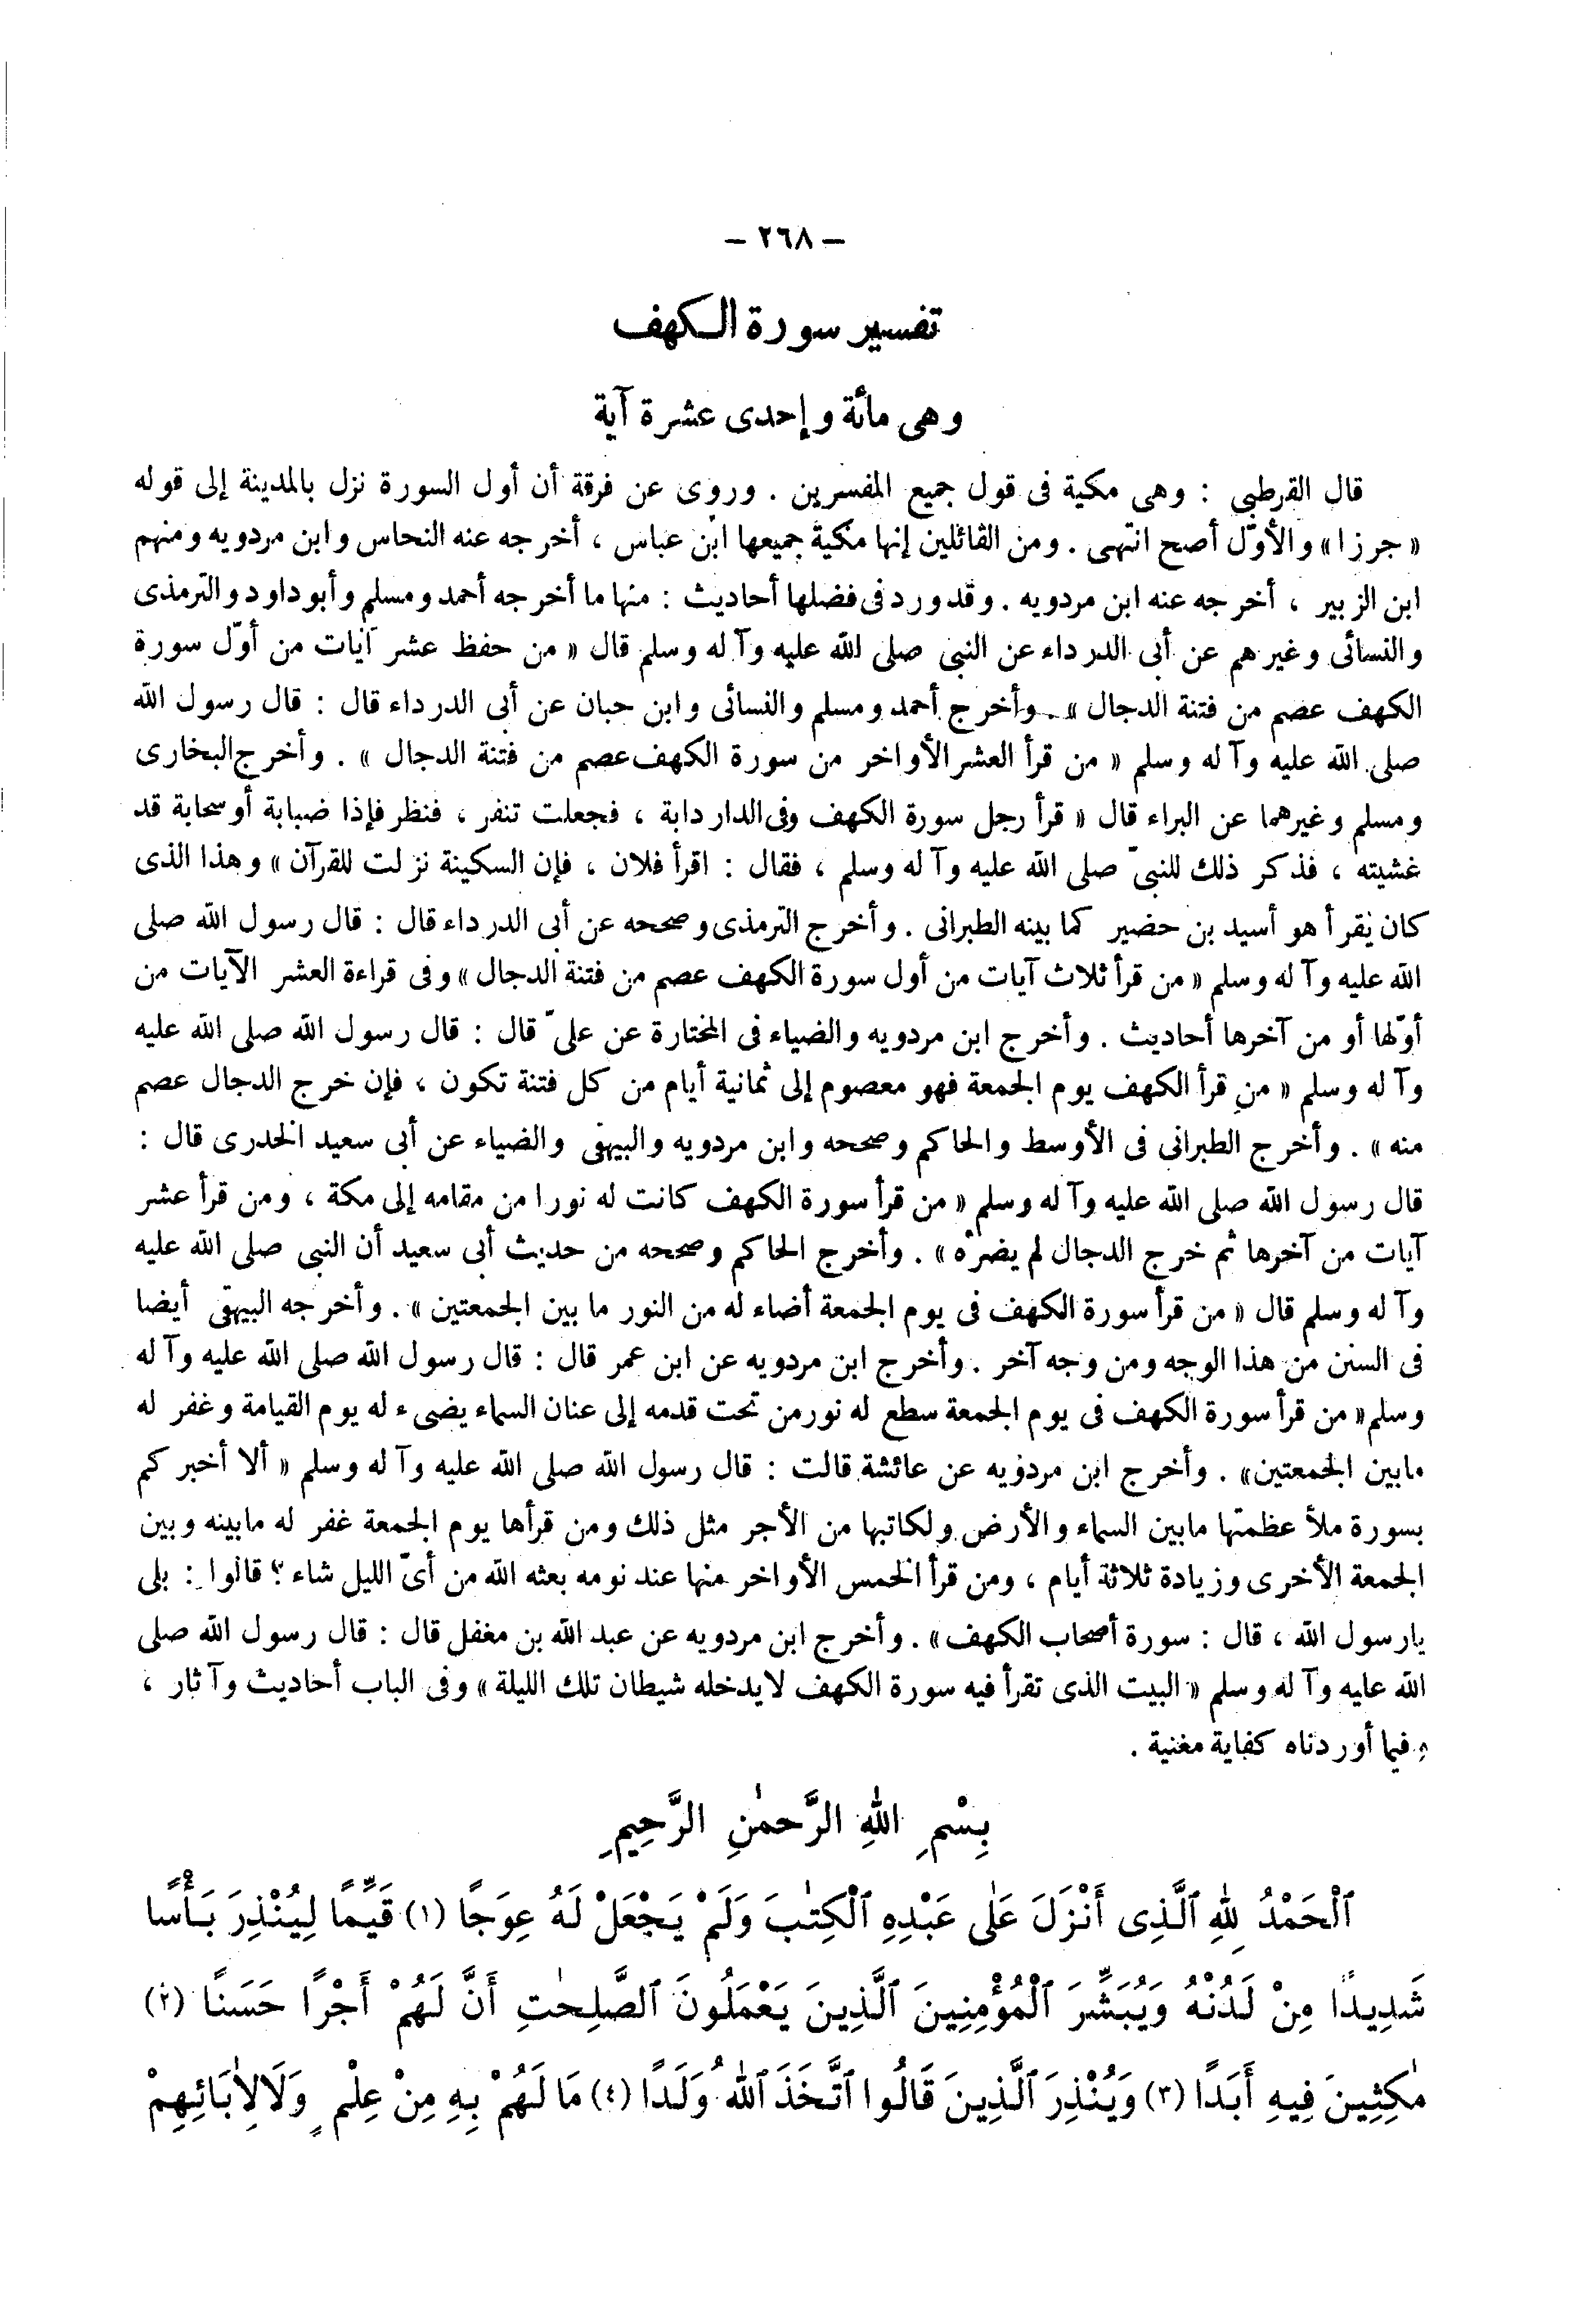 – ٢٦٨ –
تفسير سورة الكهف
وهى مائة وإحدى عشرة آية
قال القرطبي : وهى مكية فى قول جميع المفسرين . وروى عن فرقة أن أول السورة نزل بالمدينة إلى قوله
« جرزا » والأوّل أصح انتهى . ومن القائلين إنها مكية جميعها ابن عباس ، أخرجه عنه النحاس وابن مردويه ومنهم
ابن الزبير ، أخرجه عنه ابن مردويه . وقد ورد فى فضلها أحاديث : منها ما أخرجه أحمد ومسلم وأبو داود والترمذى
والنسائى وغيرهم عن أبى الدرداء عن النبى صلى الله عليه وآله وسلم قال « من حفظ عشر آيات من أوّل سورة
الكهف عصم من فتنة الدجال » . وأخرج أحمد ومسلم والنسائى وابن حبان عن أبى الدرداء قال : قال رسول الله
صلى الله عليه وآله وسلم « من قرأ العشر الأواخر من سورة الكهف عصم من فتنة الدجال » . وأخرج البخارى
ومسلم وغيرهما عن البراء قال « قرأ رجل سورة الكهف وفى الدار دابة ، فجعلت تنفر ، فنظر فإذا ضبابة أو سحابة قد
غشيته ، فذكر ذلك للنبىّ صلى الله عليه وآله وسلم ، فقال : اقرأ فلان ، فإن السكينة نزلت للقرآن » وهذا الذى
كان يقرأ هو أسيد بن حضير كما بينه الطبرانى . وأخرج الترمذى وصححه عن أبى الدرداء قال : قال رسول الله صلى
الله عليه وآله وسلم « من قرأ ثلاث آيات من أول سورة الكهف عصم من فتنة الدجال » وفى قراءة العشر الآيات من
أوّلها أو من آخرها أحاديث . وأخرج ابن مردويه والضياء فى المختارة عن علىّ قال : قال رسول الله صلى الله عليه
وآله وسلم « من قرأ الكهف يوم الجمعة فهو معصوم إلى ثمانية أيام من كل فتنة تكون ، فإن خرج الدجال عصم
منه » . وأخرج الطبرانى فى الأوسط والحاكم وصححه وابن مردويه والبيهقى والضياء عن أبى سعيد الخدرى قال :
قال رسول الله صلى الله عليه وآله وسلم « من قرأ سورة الكهف كانت له نورا من مقامه إلى مكة ، ومن قرأ عشر
آيات من آخرها ثم خرج الدجال لم يضرّه » . وأخرج الحاكم وصححه من حديث أبى سعيد أن النبى صلى الله عليه
وآله وسلم قال « من قرأ سورة الكهف فى يوم الجمعة أضاء له من النور ما بين الجمعتين » . وأخرجه البيهقى أيضا
فى السنن من هذا الوجه ومن وجه آخر . وأخرج ابن مردويه عن ابن عمر قال : قال رسول الله صلى الله عليه وآله
وسلم « من قرأ سورة الكهف فى يوم الجمعة سطع له نور من تحت قدمه إلى عنان السماء يضىء له يوم القيامة وغفر له
مابين الجمعتين » . وأخرج ابن مردويه عن عائشة قالت : قال رسول الله صلى الله عليه وآله وسلم « ألا أخبركم
بسورة ملأ عظمتها مابين السماء والأرض ولكاتبها من الأجر مثل ذلك ومن قرأها يوم الجمعة غفر له مابينه وبين
الجمعة الأخرى وزيادة ثلاثة أيام ، ومن قرأ الخمس الأواخر منها عند نومه بعثه الله من أىّ الليل شاء ؟ قالوا : بلى
يارسول الله ، قال : سورة أصحاب الكهف » . وأخرج ابن مردويه عن عبد الله بن مغفل قال : قال رسول الله صلى
الله عليه وآله وسلم « البيت الذى تقرأ فيه سورة الكهف لايدخله شيطان تلك الليلة » وفى الباب أحاديث وآثار ،
وفيما أوردناه كفاية مغنية .
بِسْمِ اللهِ الرَّحمٰنِ الرَّحِيمِ
ٱلْحَمْدُ لِلّٰهِ ٱلَّذِى أَنْزَلَ عَلٰى عَبْدِهِ ٱلْكِتٰبَ وَلَمْ يَجْعَلْ لَهُ عِوَجًا (١) قَيِّمًا لِيُنْذِرَ بَأْسًا
شَدِيدًا مِنْ لَدُنْهُ وَيُبَشِّرَ ٱلْمُؤْمِنِينَ ٱلَّذِينَ يَعْمَلُونَ ٱلصَّٰلِحٰتِ أَنَّ لَهُمْ أَجْرًا حَسَنًا (٢)
مٰكِثِينَ فِيهِ أَبَدًا (٣) وَيُنْذِرَ ٱلَّذِينَ قَالُوا ٱتَّخَذَ ٱللّٰهُ وَلَدًا (٤) مَا لَهُمْ بِهِ مِنْ عِلْمٍ وَلَا لِأٰبَائِهِمْ